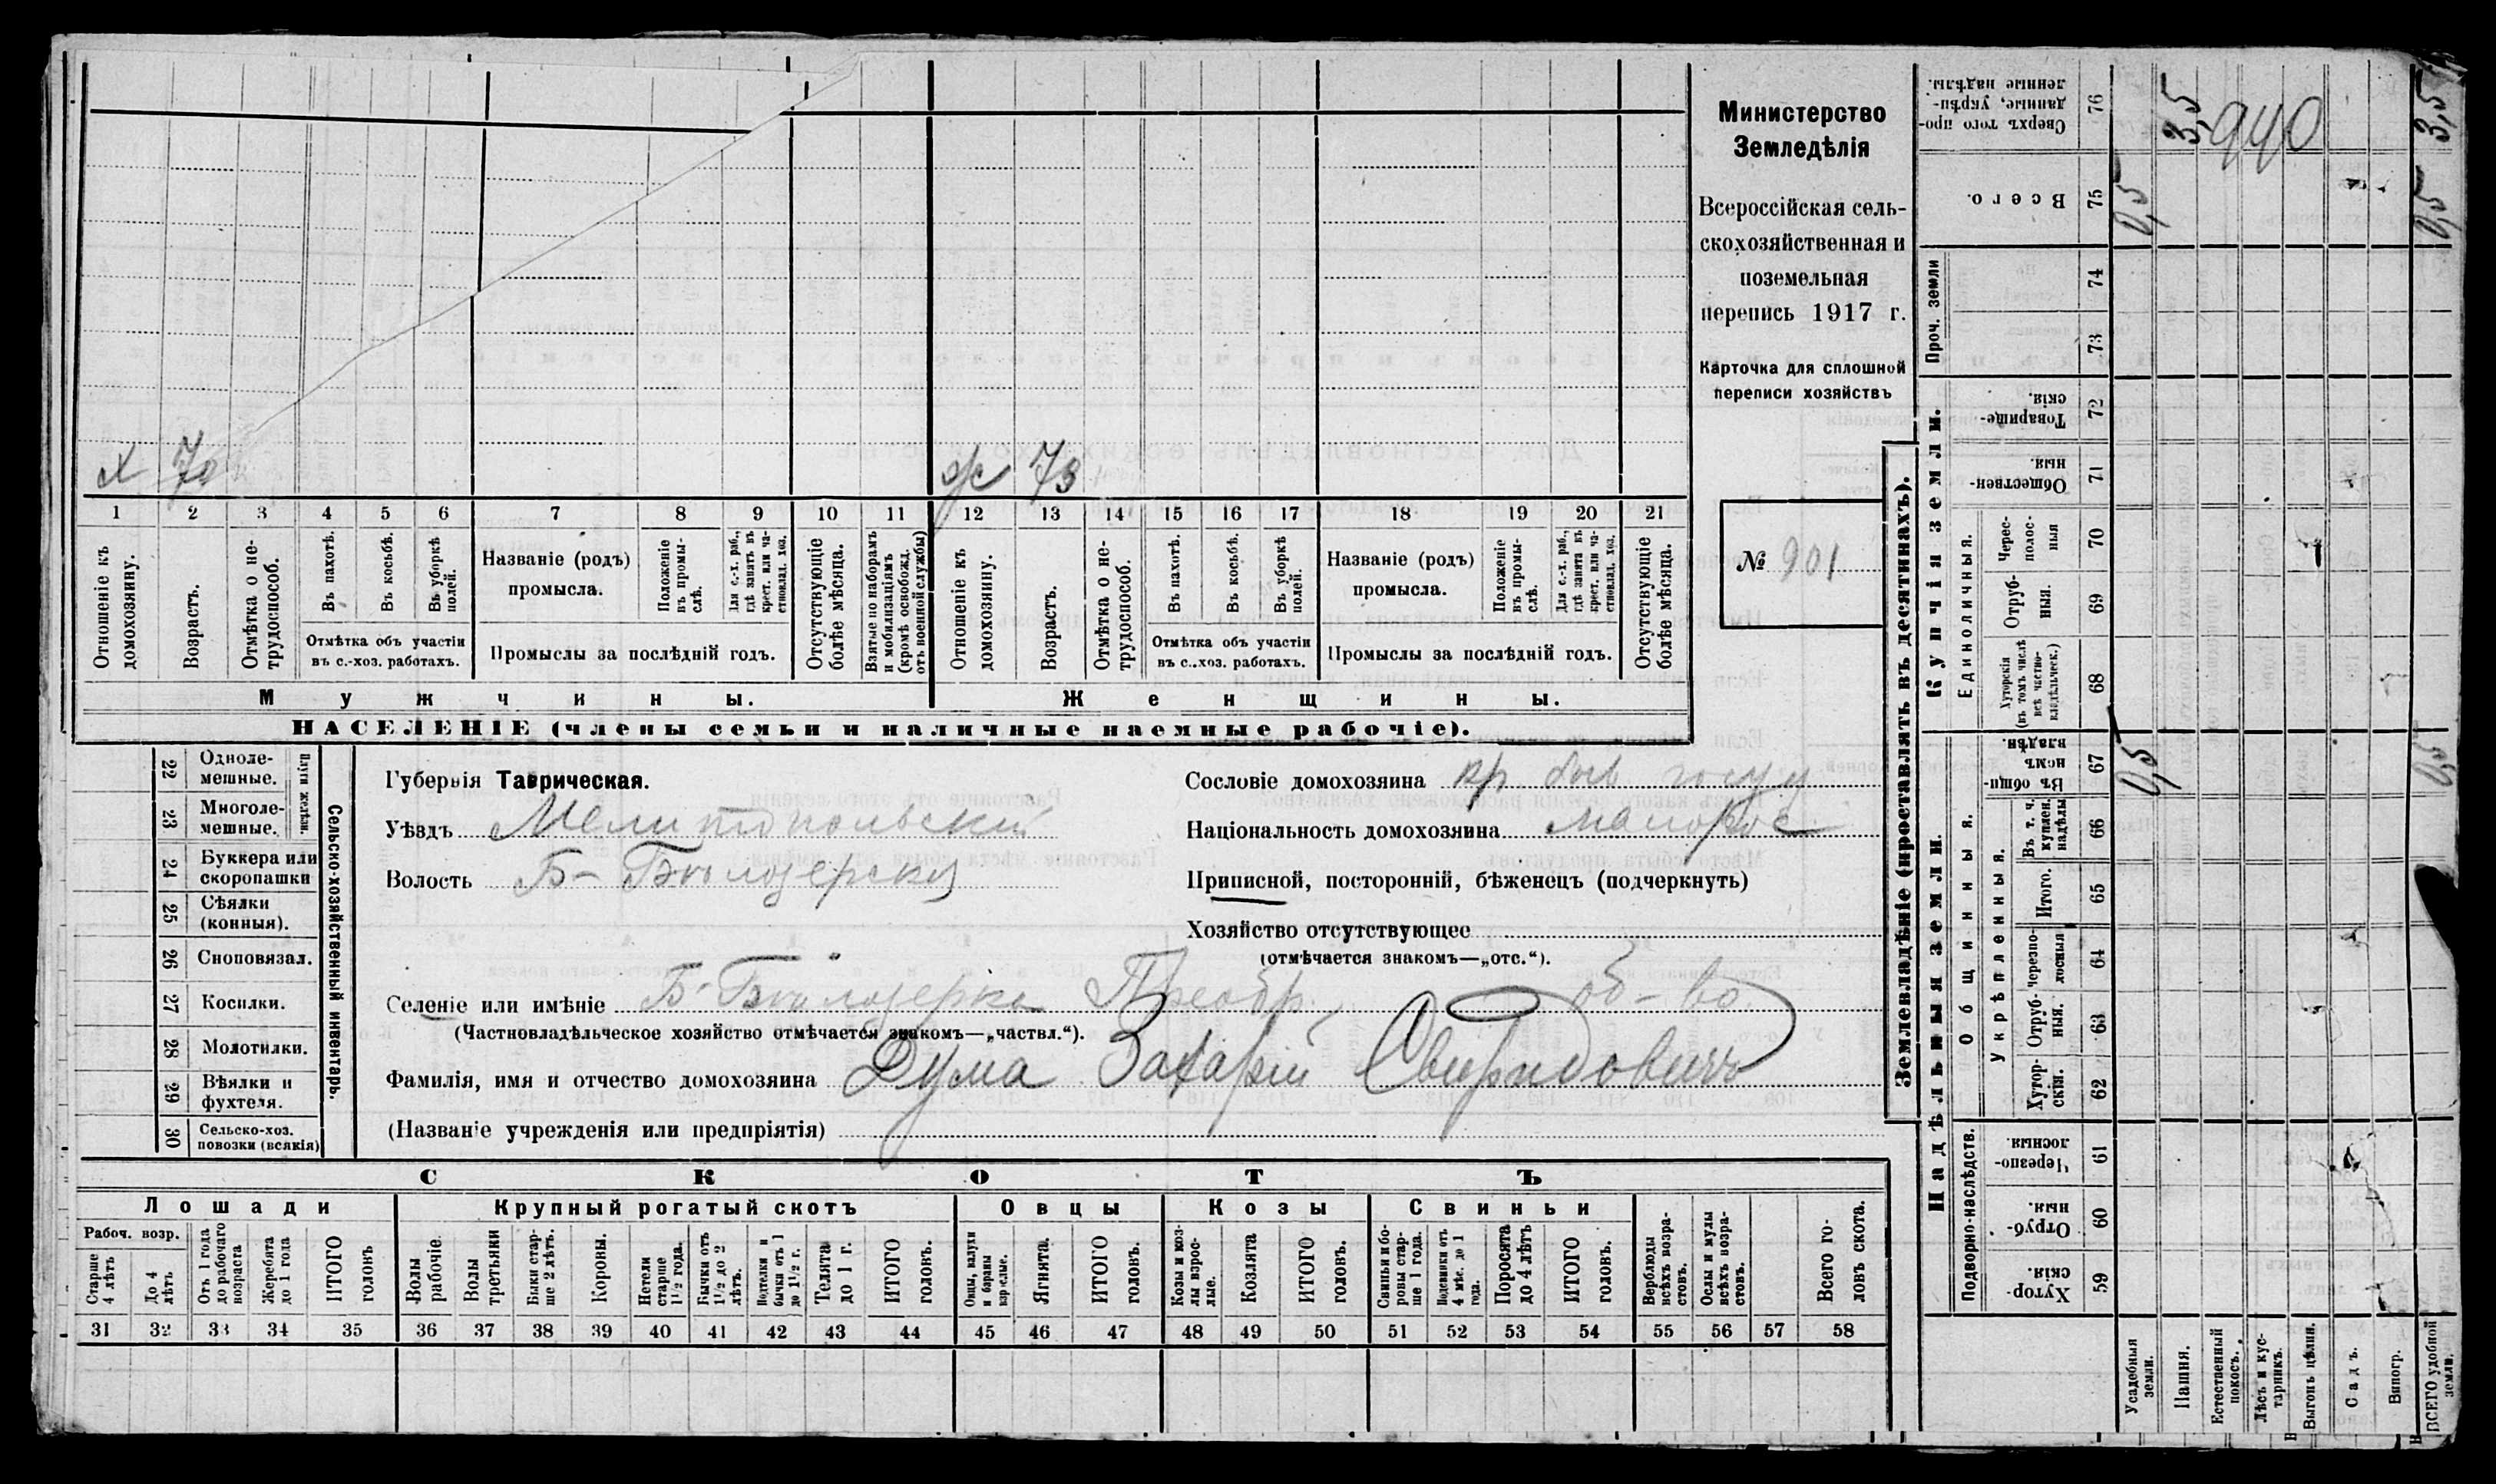 Министерство
Земледѣлія
Всероссійская сель-
скохозяйственная и
поземельная
перепись 1917 г.
Карточка для сплошной
переписи хозяйствъ
№ 901
х 70
ж 73
1 2 3 4 5 6 7 8 9 10 11 12 13 14 15 16 17 18 19 20 21
Отношеніе къ домохозяину.
Возрастъ.
Отмѣтка о не-трудоспособ.
Въ пахотѣ.
Въ косьбѣ.
Въ уборкѣ полей.
Отмѣтка объ участіи
въ с.-хоз. работахъ.
Названіе (родъ)
промысла.
Положеніе въ промы-слѣ.
Для с.-х. раб., гдѣ занятъ въ крест. или ча-стновлад. хоз.
Промыслы за послѣдній годъ.
Отсутствующіе болѣе мѣсяца.
Взятые по наборамъ и мобилизаціямъ (кромѣ освобожд. отъ военной службы)
Отношеніе къ домохозяину.
Возрастъ.
Отмѣтка о не-трудоспособ.
Въ пахотѣ.
Въ косьбѣ.
Въ уборкѣ полей.
Отмѣтка объ участіи
въ с.-хоз. работахъ.
Названіе (родъ)
промысла.
Положеніе въ промы-слѣ.
Для с.-х. раб., гдѣ занятъ въ крест. или ча-стновлад. хоз.
Промыслы за послѣдній годъ.
Отсутствующіе болѣе мѣсяца.
Мужчины.
Женщины.
НАСЕЛЕНІЕ (члены семьи и наличные наемные рабочіе).
22 Одноле-мешные.
23 Многоле-мешные.
Плуги желѣзн.
24 Буккера или скоропашки
25 Сѣялки (конныя).
26 Сноповязал.
27 Косилки.
28 Молотилки.
29 Вѣялки и фухтеля.
30 Сельско-хоз. повозки (всякія)
Сельско-хозяйственный инвентарь.
Губернія Таврическая.
Уѣздъ Мелитопольскій
Волость Б-Бѣлозерская
Сословіе домохозяина кр. быв. госуд
Національность домохозяина малорос
Приписной, посторонній, бѣженецъ (подчеркнуть)
Хозяйство отсутствующее
(отмѣчается знакомъ—„отс.“).
Селеніе или имѣніе Б-Бѣлозерка Преобр. об-во.
(Частновладѣльческое хозяйство отмѣчается знакомъ—„частвл.“).
Фамилія, имя и отчество домохозяина Дума Захарій Свиридовичъ
(Названіе учрежденія или предпріятія)
СКОТЪ
Лошади
Крупный рогатый скотъ
Овцы
Козы
Свиньи
Рабоч. возр.
Старше 4 лѣтъ
До 4 лѣтъ
Отъ 1 года до рабочаго возраста
Жеребята до 1 года
ИТОГО головъ
Волы рабочіе.
Волы третьяки
Быки стар-ше 2 лѣтъ.
Коровы.
Нетели старше 1 1/2 года.
Бычки отъ 1 1/2 до 2 лѣтъ.
Подтелки и бычки отъ 1 до 1 1/2 г.
Телята до 1 г.
ИТОГО головъ.
Овцы, валухи и бараны взрослые.
Ягнята.
ИТОГО головъ.
Козы и коз-лы взрос-лые.
Козлята
ИТОГО головъ.
Свиньи и бо-ровы стар-ше 1 года.
Подсвинки отъ 4 мѣс. до 1 года.
Поросята до 4 лѣтъ
ИТОГО головъ.
Верблюды всѣхъ возра-стовъ.
Ослы и мулы всѣхъ возра-стовъ.
Всего го-ловъ скота.
31 32 33 34 35 36 37 38 39 40 41 42 43 44 45 46 47 48 49 50 51 52 53 54 55 56 57 58
Землевладѣніе (проставлять въ десятинахъ).
Купчія земли.
Надѣльныя земли.
Сверхъ того про-данные, укрѣп-ленные надѣлы. 76 3,5 940 3,5
Всего. 75 0,5 0,5
Проч. земли
74
73
Товарище-скія. 72
Обществен-ныя. 71
Единоличныя.
Черес-полос-ныя 70
Отруб-ныя. 69
Хуторскія (въ томъ числѣ всѣ частно-владѣльческ.) 68
Общинныя.
Въ общи-номъ владѣн. 67 0,5 0,5
Укрѣпленныя.
Въ т. ч. куплен. надѣлы 66
Итого. 65
черезпо-лосныя 64
Отруб-ныя. 63
Хутор-скія. 62
Подворно-наслѣдств.
Черезпо-лосныя 61
Отруб-ныя. 60
Хутор-скія 59
Усадебныя земли.
Пашня.
Естественный покосъ.
Лѣсъ и кус-тарникъ.
Выгонъ цѣлин.
Садъ.
Виногр.
ВСЕГО удобной земли.